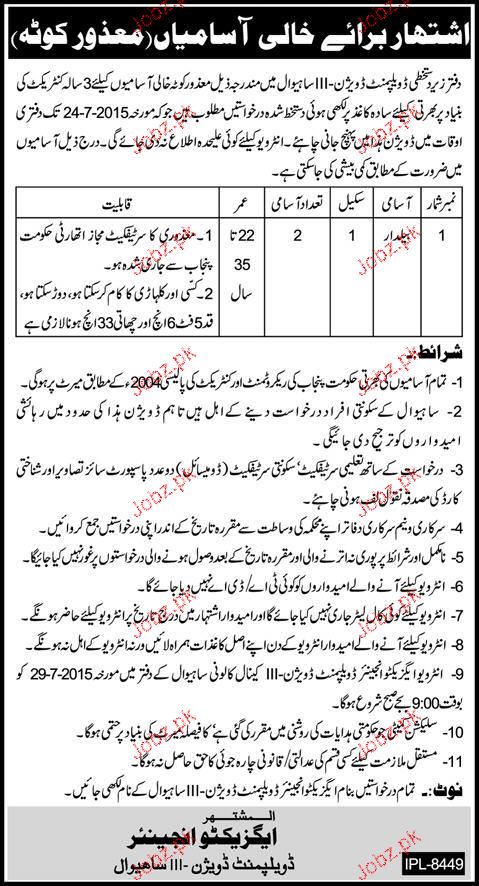 اشتہار برائے خالی آسامیاں (معذور کوٹہ)
دفتر زیر دستخطی ڈویلپمنٹ ڈویژن-III ساہیوال میں مندرجہ ذیل معذور کوٹہ خالی آسامیوں کیلئے 3 سالہ کنٹریکٹ کی
بنیاد پر بھرتی کیلئے سادہ کاغذ پر لکھی ہوئی دستخط شدہ درخواستیں مطلوب ہیں جو کہ مورخہ 24-7-2015 تک دفتری
اوقات میں ڈویژن ہذا میں پہنچ جانی چاہئے۔ انٹرویو کیلئے کوئی علیحدہ اطلاع نہ دی جائے گی۔ درج ذیل آسامیوں
میں ضرورت کے مطابق کمی بیشی کی جاسکتی ہے۔
نمبر شمار آسامی سکیل تعداد آسامی عمر قابلیت
1 بیلدار 1 2 22 تا 35 سال
1۔ معذوری کا سرٹیفکیٹ مجاز اتھارٹی حکومت
پنجاب سے جاری شدہ ہو۔
2۔ کسی اور کلہاڑی کا کام کر سکتا ہو، دوڑ سکتا ہو،
قد 5 فٹ 6 انچ اور چھاتی 33 انچ ہونا لازمی ہے
شرائط:۔
1- تمام آسامیوں کی بھرتی حکومت پنجاب کی ریکروٹمنٹ اور کنٹریکٹ کی پالیسی 2004ء کے مطابق میرٹ پر ہوگی۔
2- ساہیوال کے سکونتی افراد درخواست دینے کے اہل ہیں تاہم ڈویژن ہذا کی حدود میں رہائشی
امیدواروں کو ترجیح دی جائیگی۔
3- درخواست کے ساتھ تعلیمی سرٹیفکیٹ، سکونتی سرٹیفکیٹ (ڈومیسائل) دو عدد پاسپورٹ سائز تصاویر اور شناختی
کارڈ کی مصدقہ نقول لف ہونی چاہئے۔
4- سرکاری و نیم سرکاری دفاتر اپنے محکمہ کی وساطت سے مقررہ تاریخ کے اندر اپنی درخواستیں جمع کروائیں۔
5- نامکمل اور شرائط پر پوری نہ اترنے والی اور مقررہ تاریخ کے بعد وصول ہونے والی درخواستوں پر غور نہیں کیا جائیگا۔
6- انٹرویو کیلئے آنے والے امیدواروں کو کوئی ٹی اے/ ڈی اے نہیں دیا جائے گا۔
7- انٹرویو کیلئے کوئی کال لیٹر جاری نہیں کیا جائے گا اور امیدوار اشتہار میں درج تاریخ پر انٹرویو کیلئے حاضر ہونگے۔
8- انٹرویو کیلئے آنے والے امیدوار انٹرویو کے دن اپنے اصل کاغذات ہمراہ لائیں ورنہ انٹرویو کے اہل نہ ہونگے۔
9- انٹرویو ایگزیکٹو انجینئر ڈویلپمنٹ ڈویژن-III کینال کالونی ساہیوال کے دفتر میں مورخہ 29-7-2015 کو
بوقت 9:00 بجے صبح شروع ہوگا۔
10- سلیکشن کمیٹی جو حکومتی ہدایات کی روشنی میں مقرر کی گئی ہے' کا فیصلہ میرٹ کی بنیاد پر حتمی ہوگا۔
11- مستقل ملازمت کیلئے کسی قسم کی عدالتی/ قانونی چارہ جوئی کا حق حاصل نہ ہوگا۔
نوٹ:۔ تمام درخواستیں بنام ایگزیکٹو انجینئر ڈویلپمنٹ ڈویژن-III ساہیوال کے نام لکھی جائیں۔
المشتہر
ایگزیکٹو انجینئر
ڈویلپمنٹ ڈویژن-III ساہیوال
IPL-8449
Jobz.pk